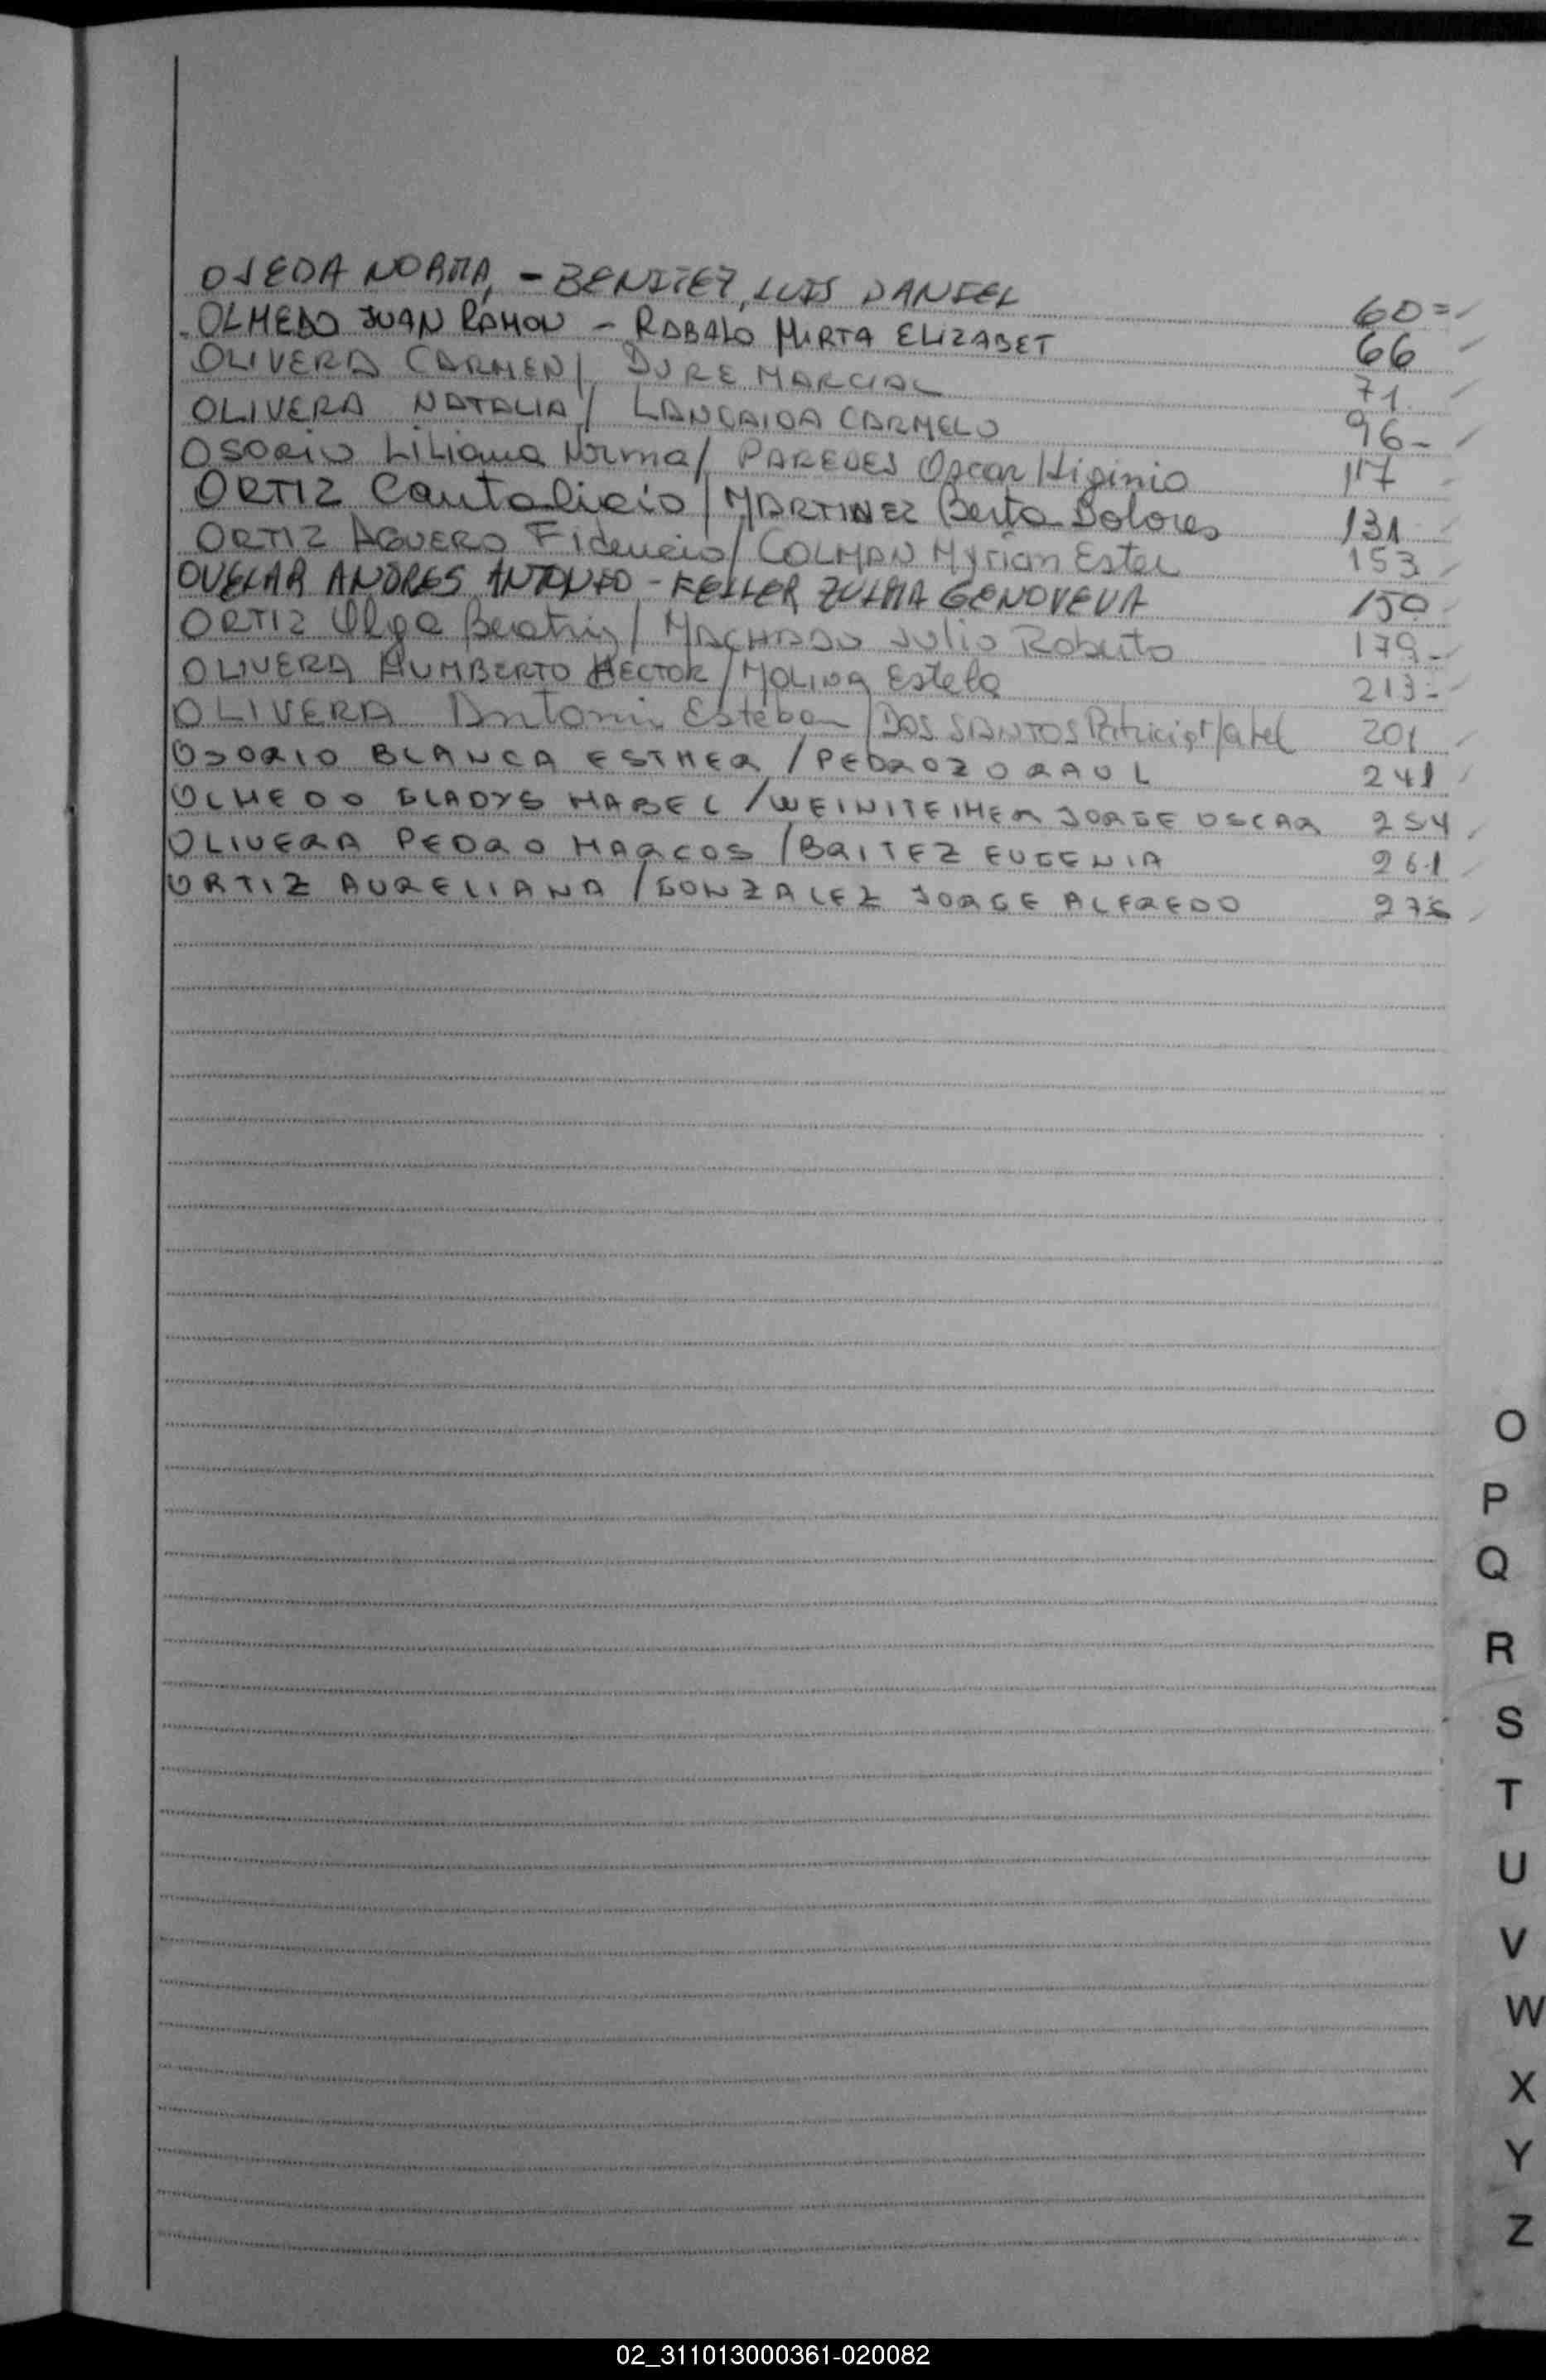 OJEDA NORMA, - BENITEZ, LUIS DANIEL 60=
OLMEDO JUAN RAMON - ROBALO MIRTA ELIZABET 66
OLIVERA CARMEN / DURE MARCIAL 71
OLIVERA NATALIA / CARMELO 96-
OSORIO Liliana Norma / PAREDES Oscar Higinio 117
ORTIZ Cantalicio / MARTINEZ Berta Dolores 131
ORTIZ AGUERO Fidencio / COLMAN Myrian Ester 153
OVELAR ANDRES ANTONIO - KELLER ZULMA GENOVEVA 150
ORTIZ Olga Beatriz / MACHADO Julio Roberto 179-
OLIVERA HUMBERTO HECTOR / MOLINA Estela 213-
OLIVERA Antonio Esteban / DOS SANTOS Patricia 201
OSORIO BLANCA ESTHER / PEDROZO RAUL 241
OLMEDO GLADYS MABEL / JORGE OSCAR 254
OLIVERA PEDRO MARCOS / BRITEZ EUGENIA 261
ORTIZ AURELIANA / GONZALEZ JORGE ALFREDO
O
P
Q
R
S
T
U
V
W
X
Y
Z
02_311013000361-020082